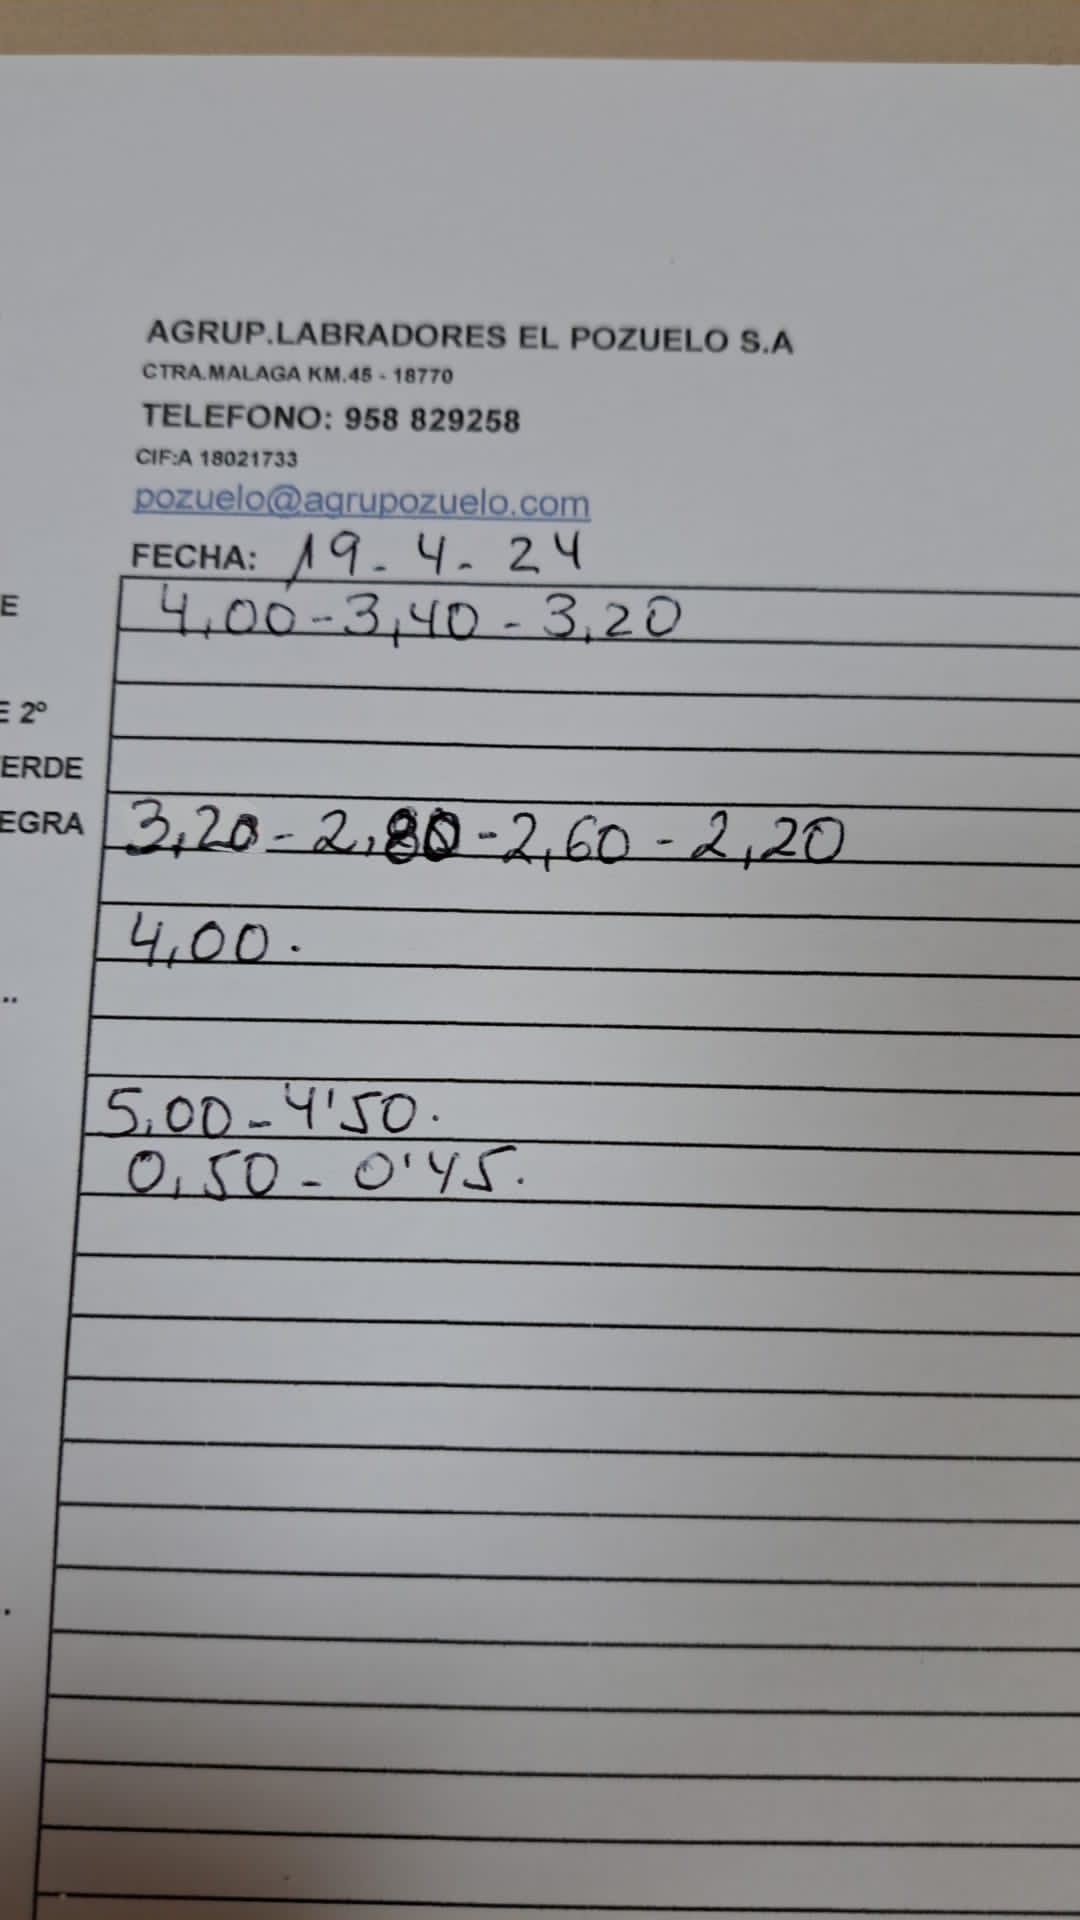 AGRUP.LABRADORES EL POZUELO S.A
CTRA.MALAGA KM.45 - 18770
TELEFONO: 958 829258
CIF:A 18021733
pozuelo@agrupozuelo.com
FECHA: 19-4-24
E 4,00-3,40-3,20
E 2º
ERDE
EGRA 3,20-2,80-2,60-2,20
4,00.
..
5,00-4'50.
0,50-0'45.
.